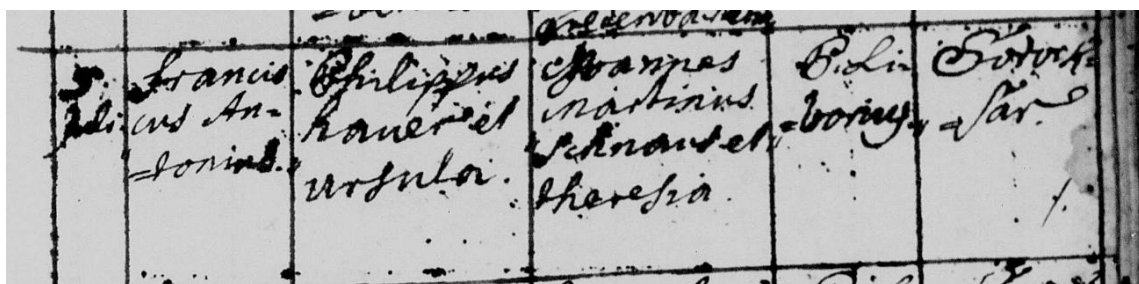 5. Francis=
Juli cus An=
=tonius.
Philippus
hauer et
Ursula.
Joannes
Martinus
Schnaus et
theresia
P. Li=
=borius.
Sorock=
=sar.